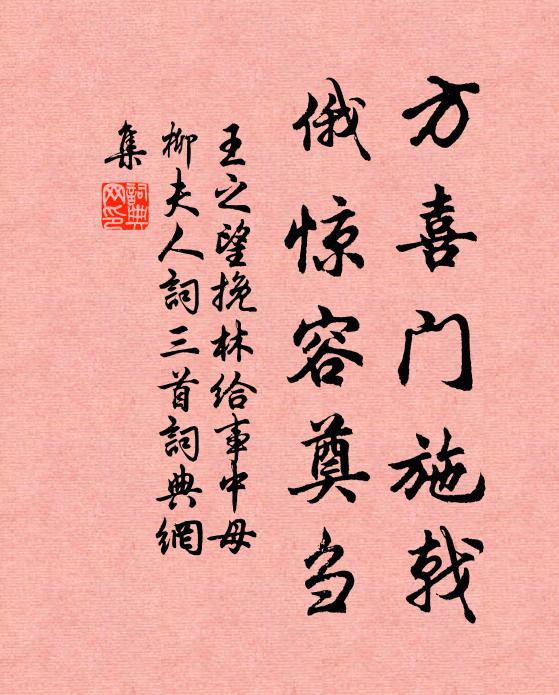 方喜门施戟
俄惊容奠刍
王之望挽林给事中母
柳夫人詞三首詞典網
集
詞典网印